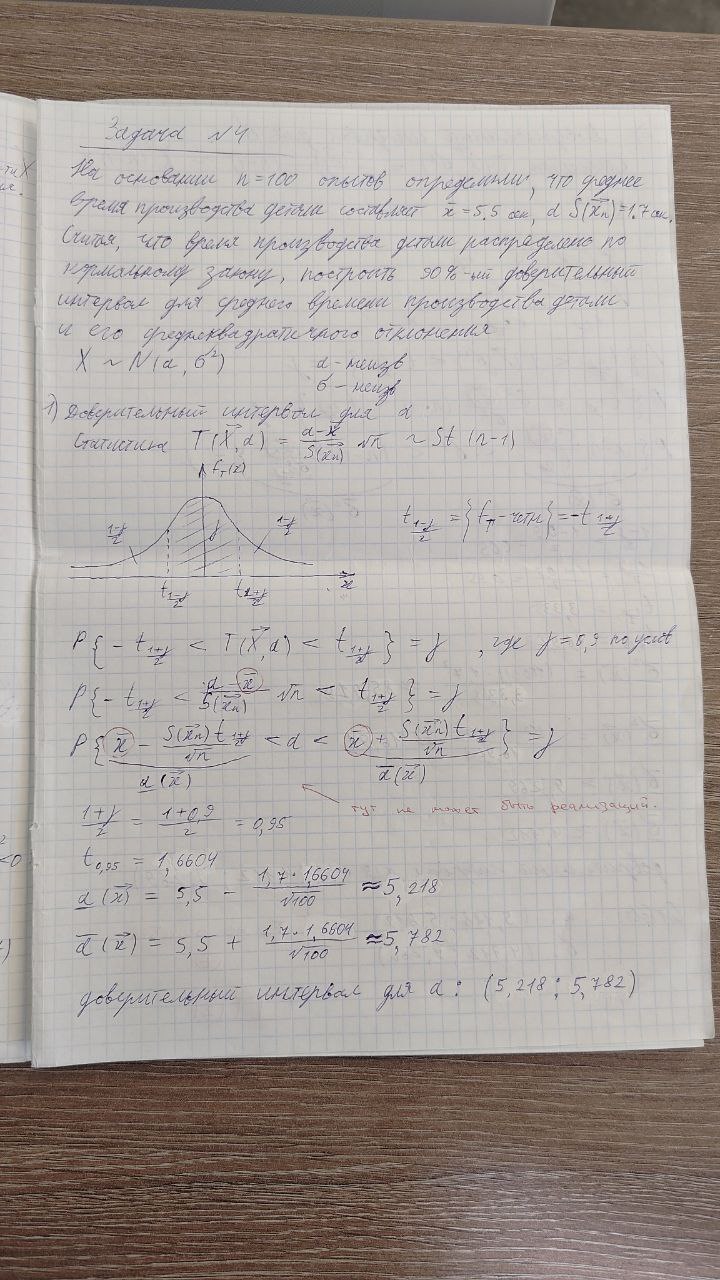 Задача №4
На основании n=100 опытов определили, что среднее
время производства детали составляет x̄=5,5 сек, а S(x⃗n)=1.7 сек.
Считая, что время производства детали распределено по
нормальному закону, построить 90%-ый доверительный
интервал для среднего времени производства детали
и его среднеквадратичного отклонения
X ~ N(a, σ²) a - неизв
σ - неизв
1) Доверительный интервал для a
Статистика T(X⃗, a) = (a-x̄)/S(x⃗n) √n ~ St (n-1)
f_T(x)
(1-γ)/2 γ (1-γ)/2 t_{(1-γ)/2} = {f_T - четн} = -t_{(1+γ)/2}
t_{(1-γ)/2} t_{(1+γ)/2} x
P{-t_{(1+γ)/2} < T(X⃗, a) < t_{(1+γ)/2}} = γ , где γ = 0,9 по услов
P{-t_{(1+γ)/2} < (a - x̄)/S(x⃗n) √n < t_{(1+γ)/2}} = γ
P{x̄ - S(x⃗n) t_{(1+γ)/2}/√n < a < x̄ + S(x⃗n) t_{(1+γ)/2}/√n} = γ
a̲(x⃗) a̅(x⃗)
тут не может быть реализаций.
(1+γ)/2 = (1+0,9)/2 = 0,95
t_{0,95} = 1,6604
a̲(x⃗) = 5,5 - (1,7·1,6604)/√100 ≈ 5,218
a̅(x⃗) = 5,5 + (1,7·1,6604)/√100 ≈ 5,782
доверительный интервал для a: (5,218; 5,782)